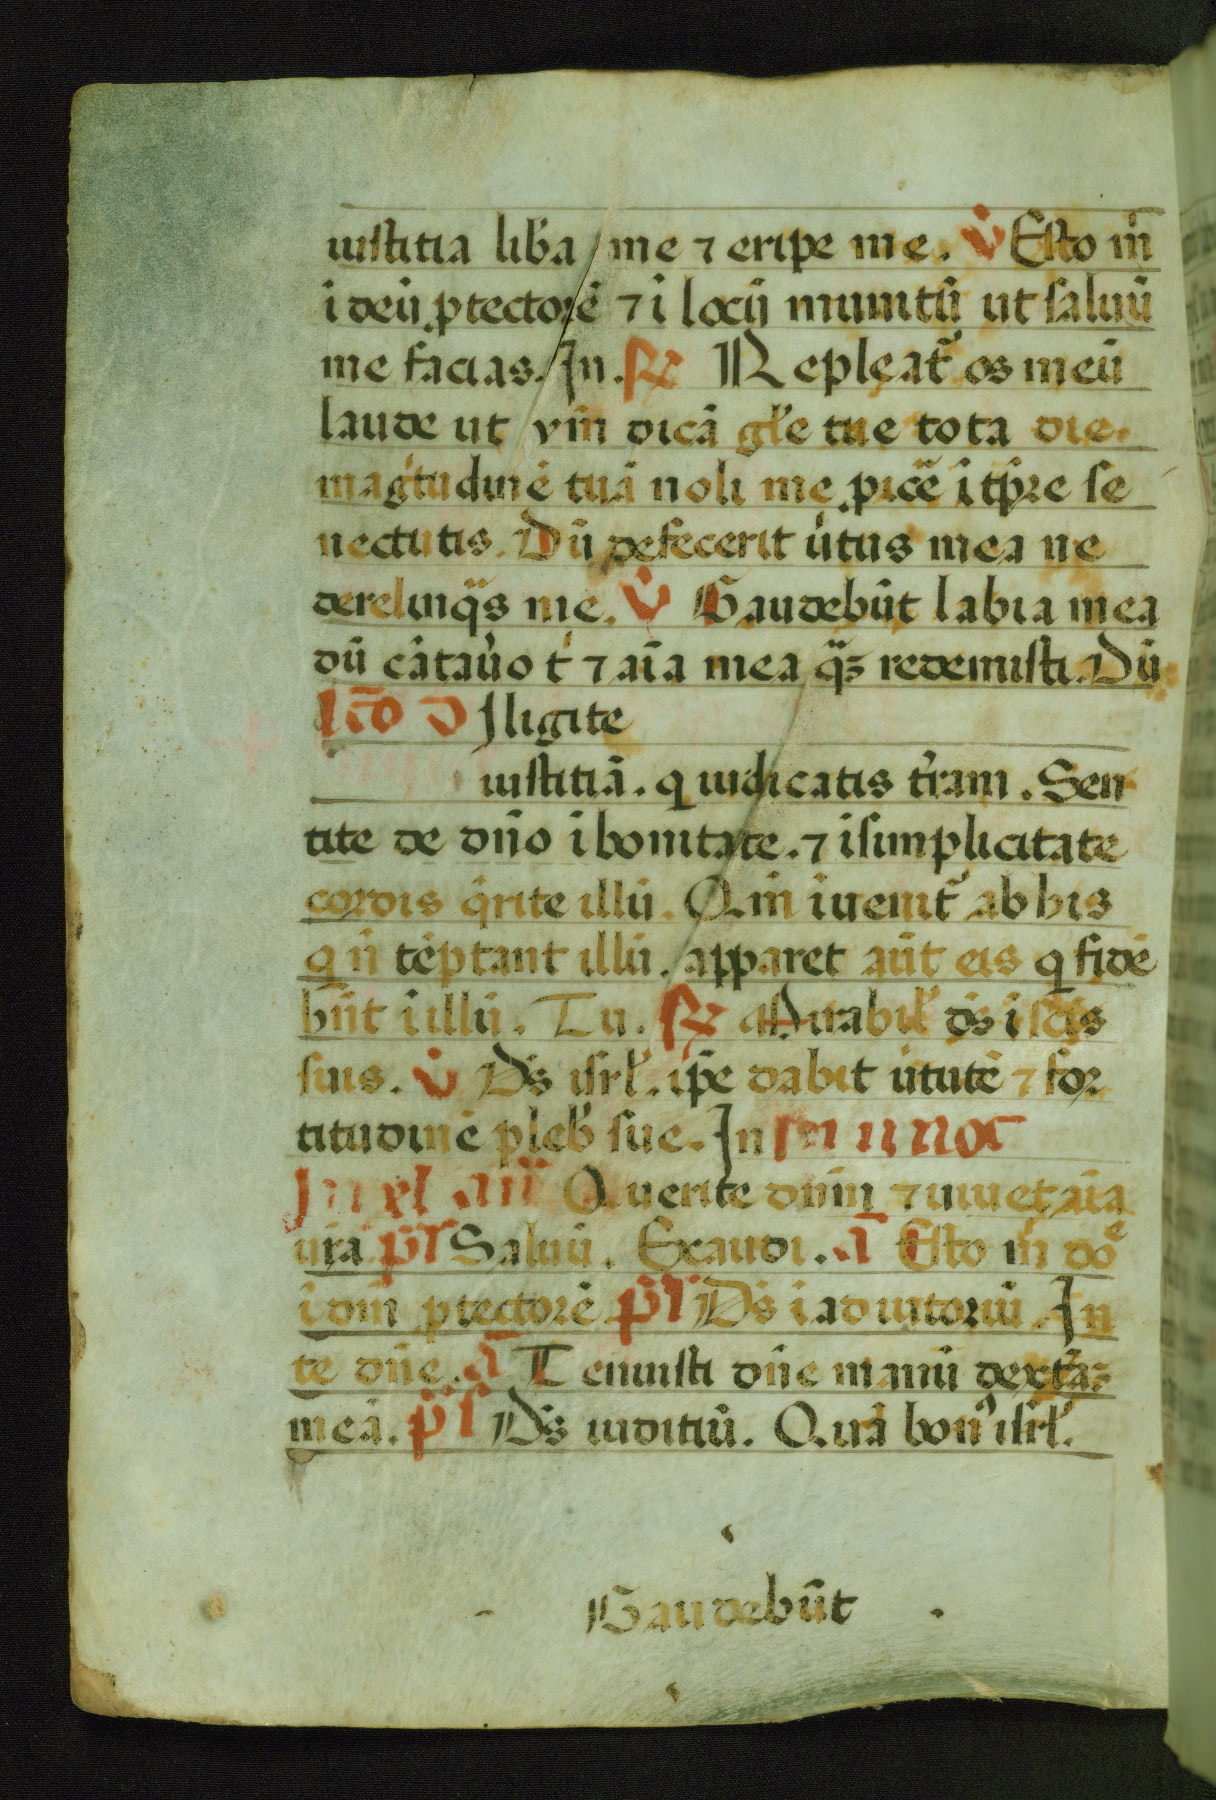 iustitia lib̾a me ⁊ eripe me. v̇ Esto m̄
ī deū ꝓtectorē ⁊ ī locū munitū ut saluū
me facias. In. ꝶ Repleat̾ os meū
laude ut ymm̄ dicā gl̾e tue tota die
magi̇tudinē tuā noli me ꝓicē ī tp̄re se
nectutis. Dū defecerit u̇tus mea ne
derelinq̃s me. v̇ Gaudebūt labia mea
dū cātau̇o ṫ ⁊ aīa mea q̃ꝫ redemisti. Dū
lc̄o Diligite
iustitiā. q iudicatis t̾ram. Sen
tite de dn̄o ī bonitate. ⁊ ī simplicitate
cordis q̇rite illū. Qm̄ īuenit̾ ab his
q n̄ tēptant illū. apparet aūt eis q fidē
hn̄t ī illū. Tu. ꝶ Mirabil̾ ds̄ ī sc̄is
suis. v̇ Ds̄ isrl̾. ip̄e dabit u̇tutē ⁊ for
titudinē pleb̾ sue. In
Querite dnm̄ ⁊ uiuet aīa
ur̄a ps̄ Saluū. Exaudi. ā Esto m̄ dn̄e
ī dm̄ ꝓtectorē ps̄ Ds̄ ī aduitoriū In
te dn̄e. ā Tenuisti dn̄e manū dext̾aꝫ
meā. ps̄ Ds̄ iuditiū. Quā bon̾ isrl̾.
Gaudebūt